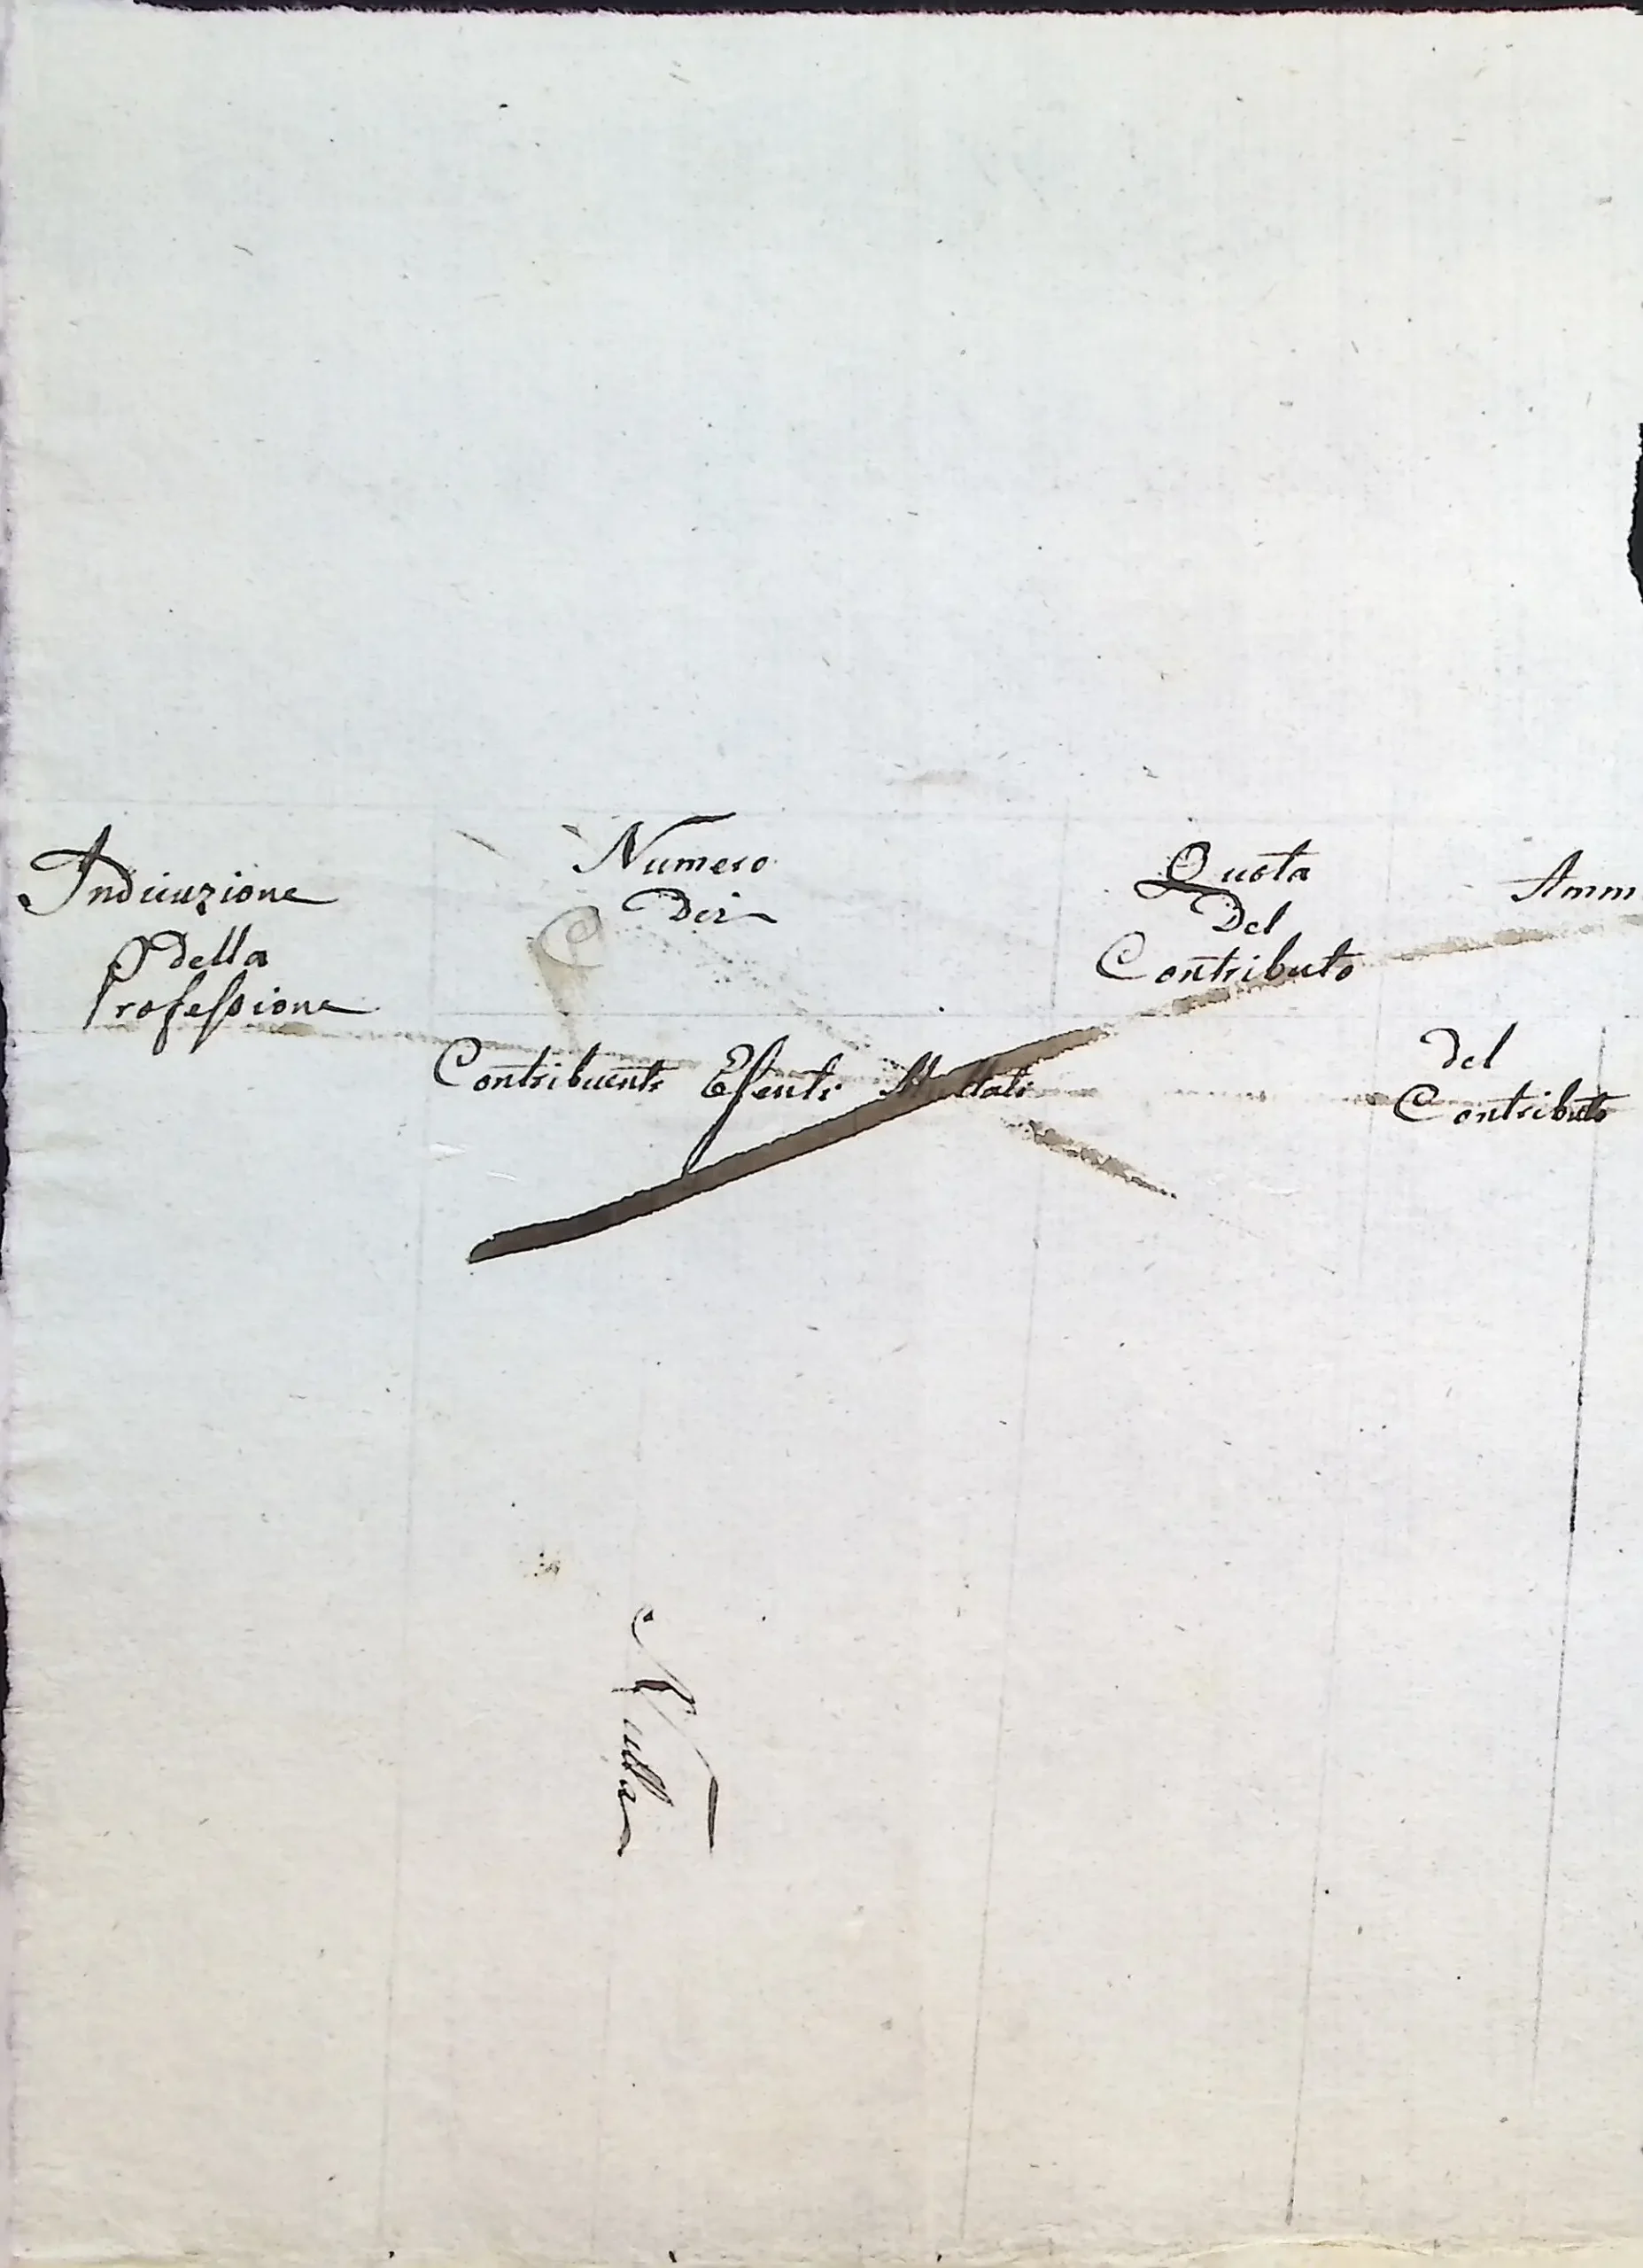 Indicazione
della
Professione
Numero
Dei
Contribuenti Esenti
Quota
Del
Contributo
Amm
del
Contributo
Nulla